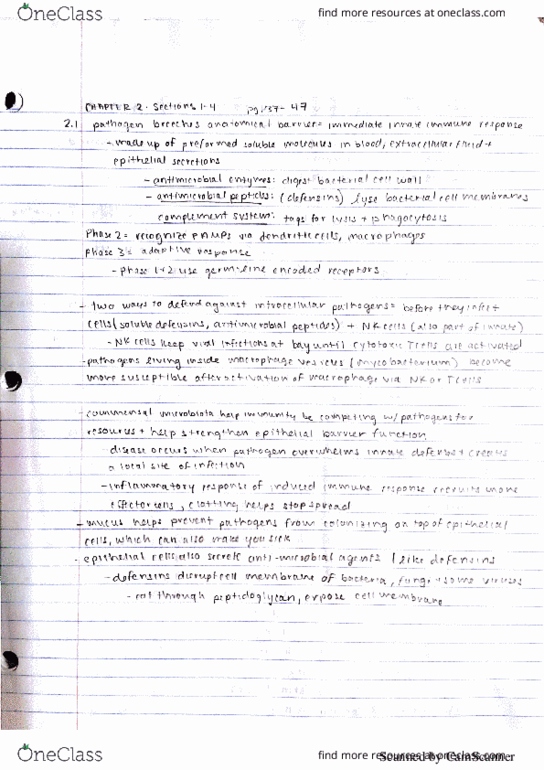 OneClass
find more resources at oneclass.com
CHAPTER 2 - Sections 1-4 pg. 37-47
2.1 pathogen breeches anatomical barrier = immediate innate immune response
- made up of preformed soluble molecules in blood, extracellular fluid +
epithelial secretions
- antimicrobial enzymes: digest bacterial cell wall
- antimicrobial peptides: (defensins) lyse bacterial cell membranes
complement system: tags for lysis + phagocytosis
Phase 2 = recognize PAMPs via dendritic cells, macrophages
Phase 3 = adaptive response
- Phase 1 + 2 use germ-line encoded receptors
- two ways to defend against intracellular pathogens = before they infect
cells (soluble defensins, antimicrobial peptides) + NK cells (also part of innate)
- NK cells keep viral infections at bay until cytotoxic T cells are activated
- pathogens living inside macrophage vesicles (mycobacterium) become
more susceptible after activation of macrophage via NK or T cells
- commensal microbiota help immunity be competing w/ pathogens for
resources + help strengthen epithelial barrier function
disease occurs when pathogen overwhelms innate defense + creates
a local site of infection
- inflammatory response of induced immune response recruits more
effector cells, clotting helps stop spread
- mucus helps prevent pathogens from colonizing on top of epithelial
cells, which can also make you sick
- epithelial cells also secrete anti-microbial agents like defensins
- defensins disrupt cell membrane of bacteria, fungi + some viruses
- eat through peptidoglycan, expose cell membrane
OneClass
find more resources at oneclass.com
Scanned by CamScanner